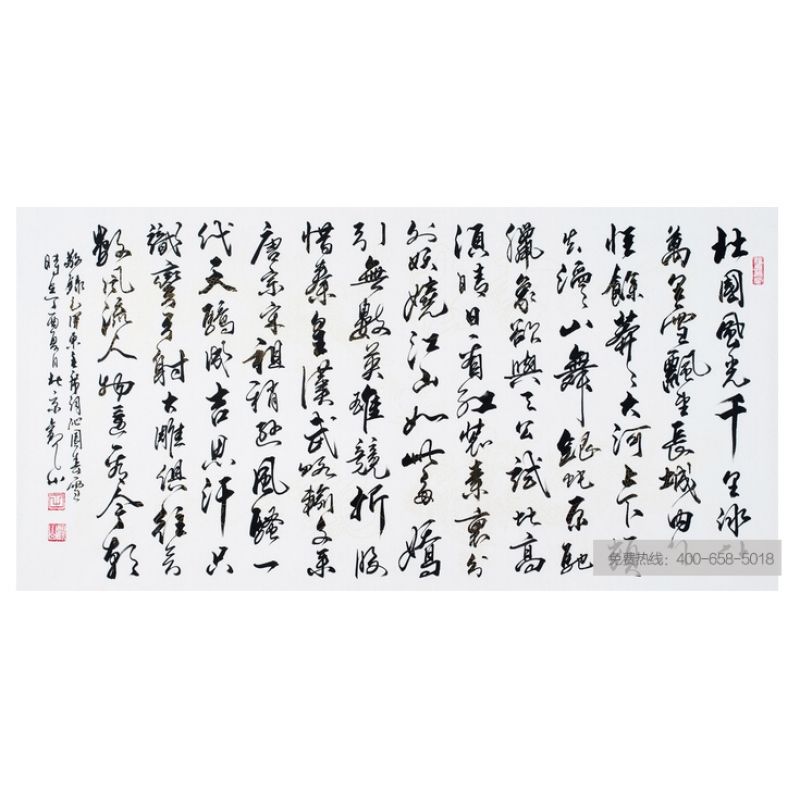 北國風光千里冰封
萬里雪飄望長城内外
惟餘莽〻大河上下頓
失滔〻山舞銀蛇原馳
臘象欲與天公試比高
須晴日看紅裝素裹分
外妖嬈江山如此多嬌
引無數英雄競折腰
惜秦皇漢武略輸文采
唐宗宋祖稍遜風騷一
代天驕成吉思汗只
識彎弓射大雕俱往矣
數風流人物還看今朝
敬錄毛澤東主席詞沁園春雪
時在丁酉夏月北京
免费热线：400-658-5018